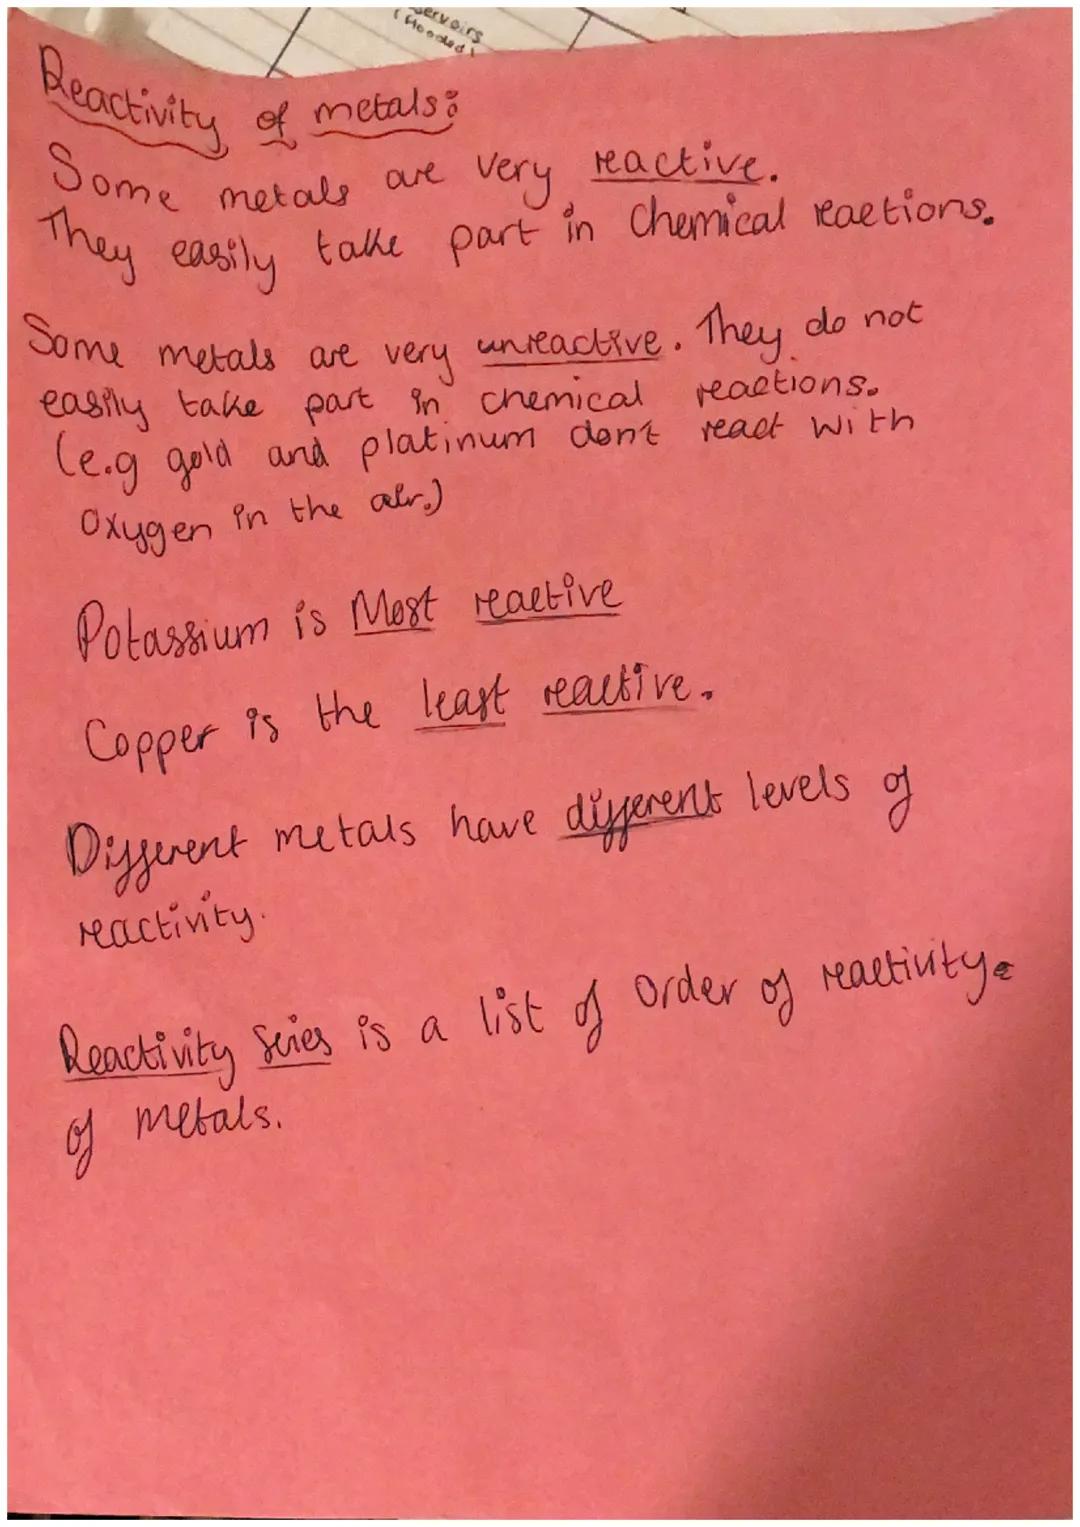 servoirs
(Flooded)
Reactivity of metals:
Some metals are very reactive.
They easily take part in Chemical reactions.
Some metals are very unreactive. They do not
easily take part in chemical reactions.
(e.g gold and platinum dont react with
Oxygen in the air.)
Potassium is Most reactive
Copper is the least reactive.
Different metals have different levels of
reactivity.
Reactivity Seies is a list of Order of reactivity.
of metals.